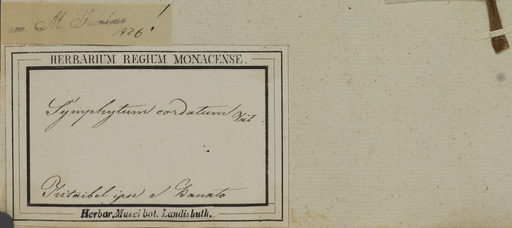 M
1926!
HERBARIUM REGIUM MONACENSE.
Symphytum cordatum Kit.
Kitaibel ipse e Banato
Herbar. Musei bot. Landishuth.